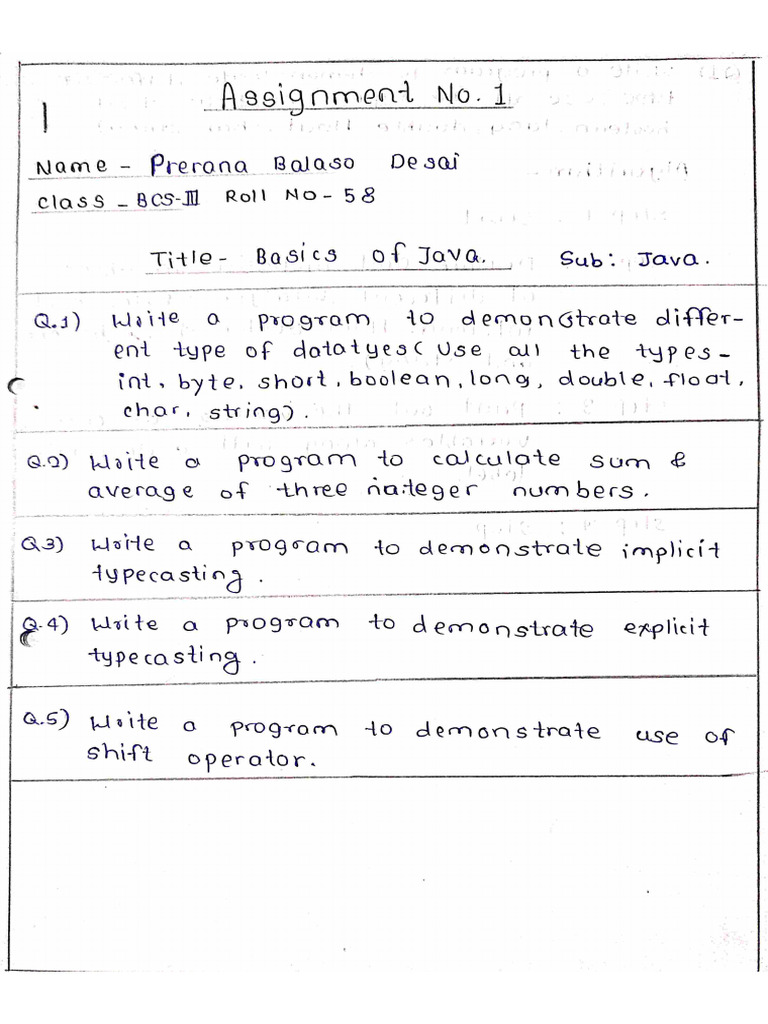 Assignment No. 1
1
Name - Prerana Balaso Desai
Class - BCS-III Roll No - 58
Title - Basics of Java. Sub: Java.
Q.1) Write a program to demonstrate differ-
ent type of datatyes (Use all the types -
int, byte, short, boolean, long, double, float,
char, string).
Q.2) Write a program to calculate sum &
average of three integer numbers.
Q.3) Write a program to demonstrate implicit
typecasting.
Q.4) Write a program to demonstrate explicit
typecasting.
Q.5) Write a program to demonstrate use of
shift operator.